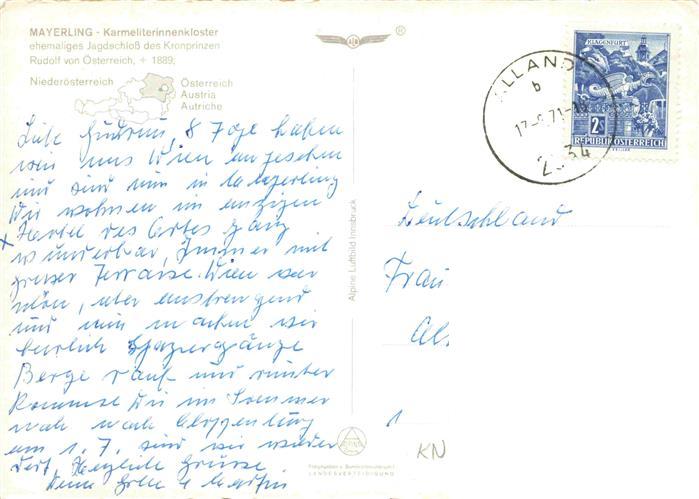 MAYERLING - Karmeliterinnenkloster
ehemaliges Jagdschloß des Kronprinzen
Rudolf von Österreich, + 1889;
Niederösterreich
Österreich
Austria
Autriche
®
ALLAND
b
71-18
2534
KLAGENFURT
2s
REPUBLIK ÖSTERREICH
Liebe Gudrun, 8 Tage haben
wir uns Wien angesehen
und sind nun in Mayerling
Wir wohnen im einzigen
x Hotel des Ortes ganz
wunderbar, Zimmer mit
grosser Terrasse. Wien war
schön, aber anstrengend
und nun machen wir
herrlich Spaziergänge
Berge rauf und runter
Kommst Du im Sommer
mal nach Cloppenburg
am 1. 7. sind wir wieder
dort, Herzliche Grüsse
Deine
Alpine Luftbild Innsbruck
Deutschland
Frau
LANDESVERTEIDIGUNG
KN